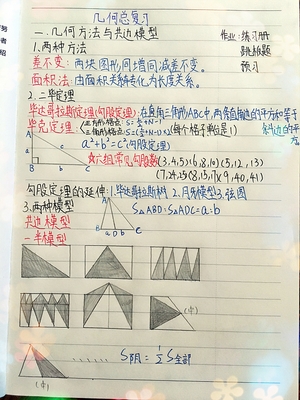 几何总复习
一.几何方法与共边模型
作业:练习册
1.两种方法
跳蚤题
差不变:两块图形,同增同减差不变。
预习
面积法:由面积关系转化为长度关系。
2.二毕定理
毕达哥拉斯定理(勾股定理):在直角三角形ABC中,两条直角边的平方和等于
斜边的平方
毕克定理
正方形格点 S=
三角形格点 S=
(每个格子单位是1)
A
c
b
B
a
C
a²+b²=c² 勾股定理
六组常见勾股数
(3,4,5)(6,8,10)(5,12,13)
(7,24,25)(8,15,17)(9,40,41)
勾股定理的延伸:1.毕达哥拉斯树 2.月牙模型 3.弦图
3.两种模型
A
S△ABD:S△ADC=a:b
共边模型
B
a
D
b
C
一半模型
(中)
S阴=½S全部
(中)